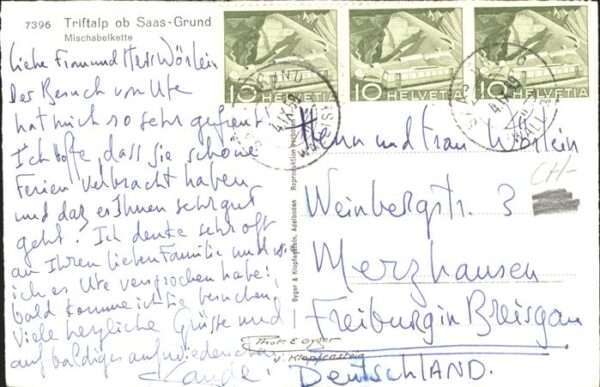 7396 Triftalp ob Saas-Grund
Mischabelkette
Liebe Frau und Herr Wörlein
Der Besuch von Ute
hat mich so sehr gefreut
Ich hoffe, dass Sie schöne
Ferien verbracht haben
und daß es Ihnen sehr gut
geht. Ich denke sehr oft
an Ihren lieben Familie und wie
ich es Ute versprochen habe:
bald komme ich Sie besuchen,
Viele herzliche Grüsse und
auf baldiges aufwiedersehen
10 HELVETIA
10 HELVETIA
10 HELVETIA
Gyger & Klopfenstein, Adelboden
Herrn und Frau Wörlein
CH-
Weinbergstr. 3
Merzhausen
Freiburg in Breisgau
Deutschland.
Photo E. Gyger
V. Klopfenstein